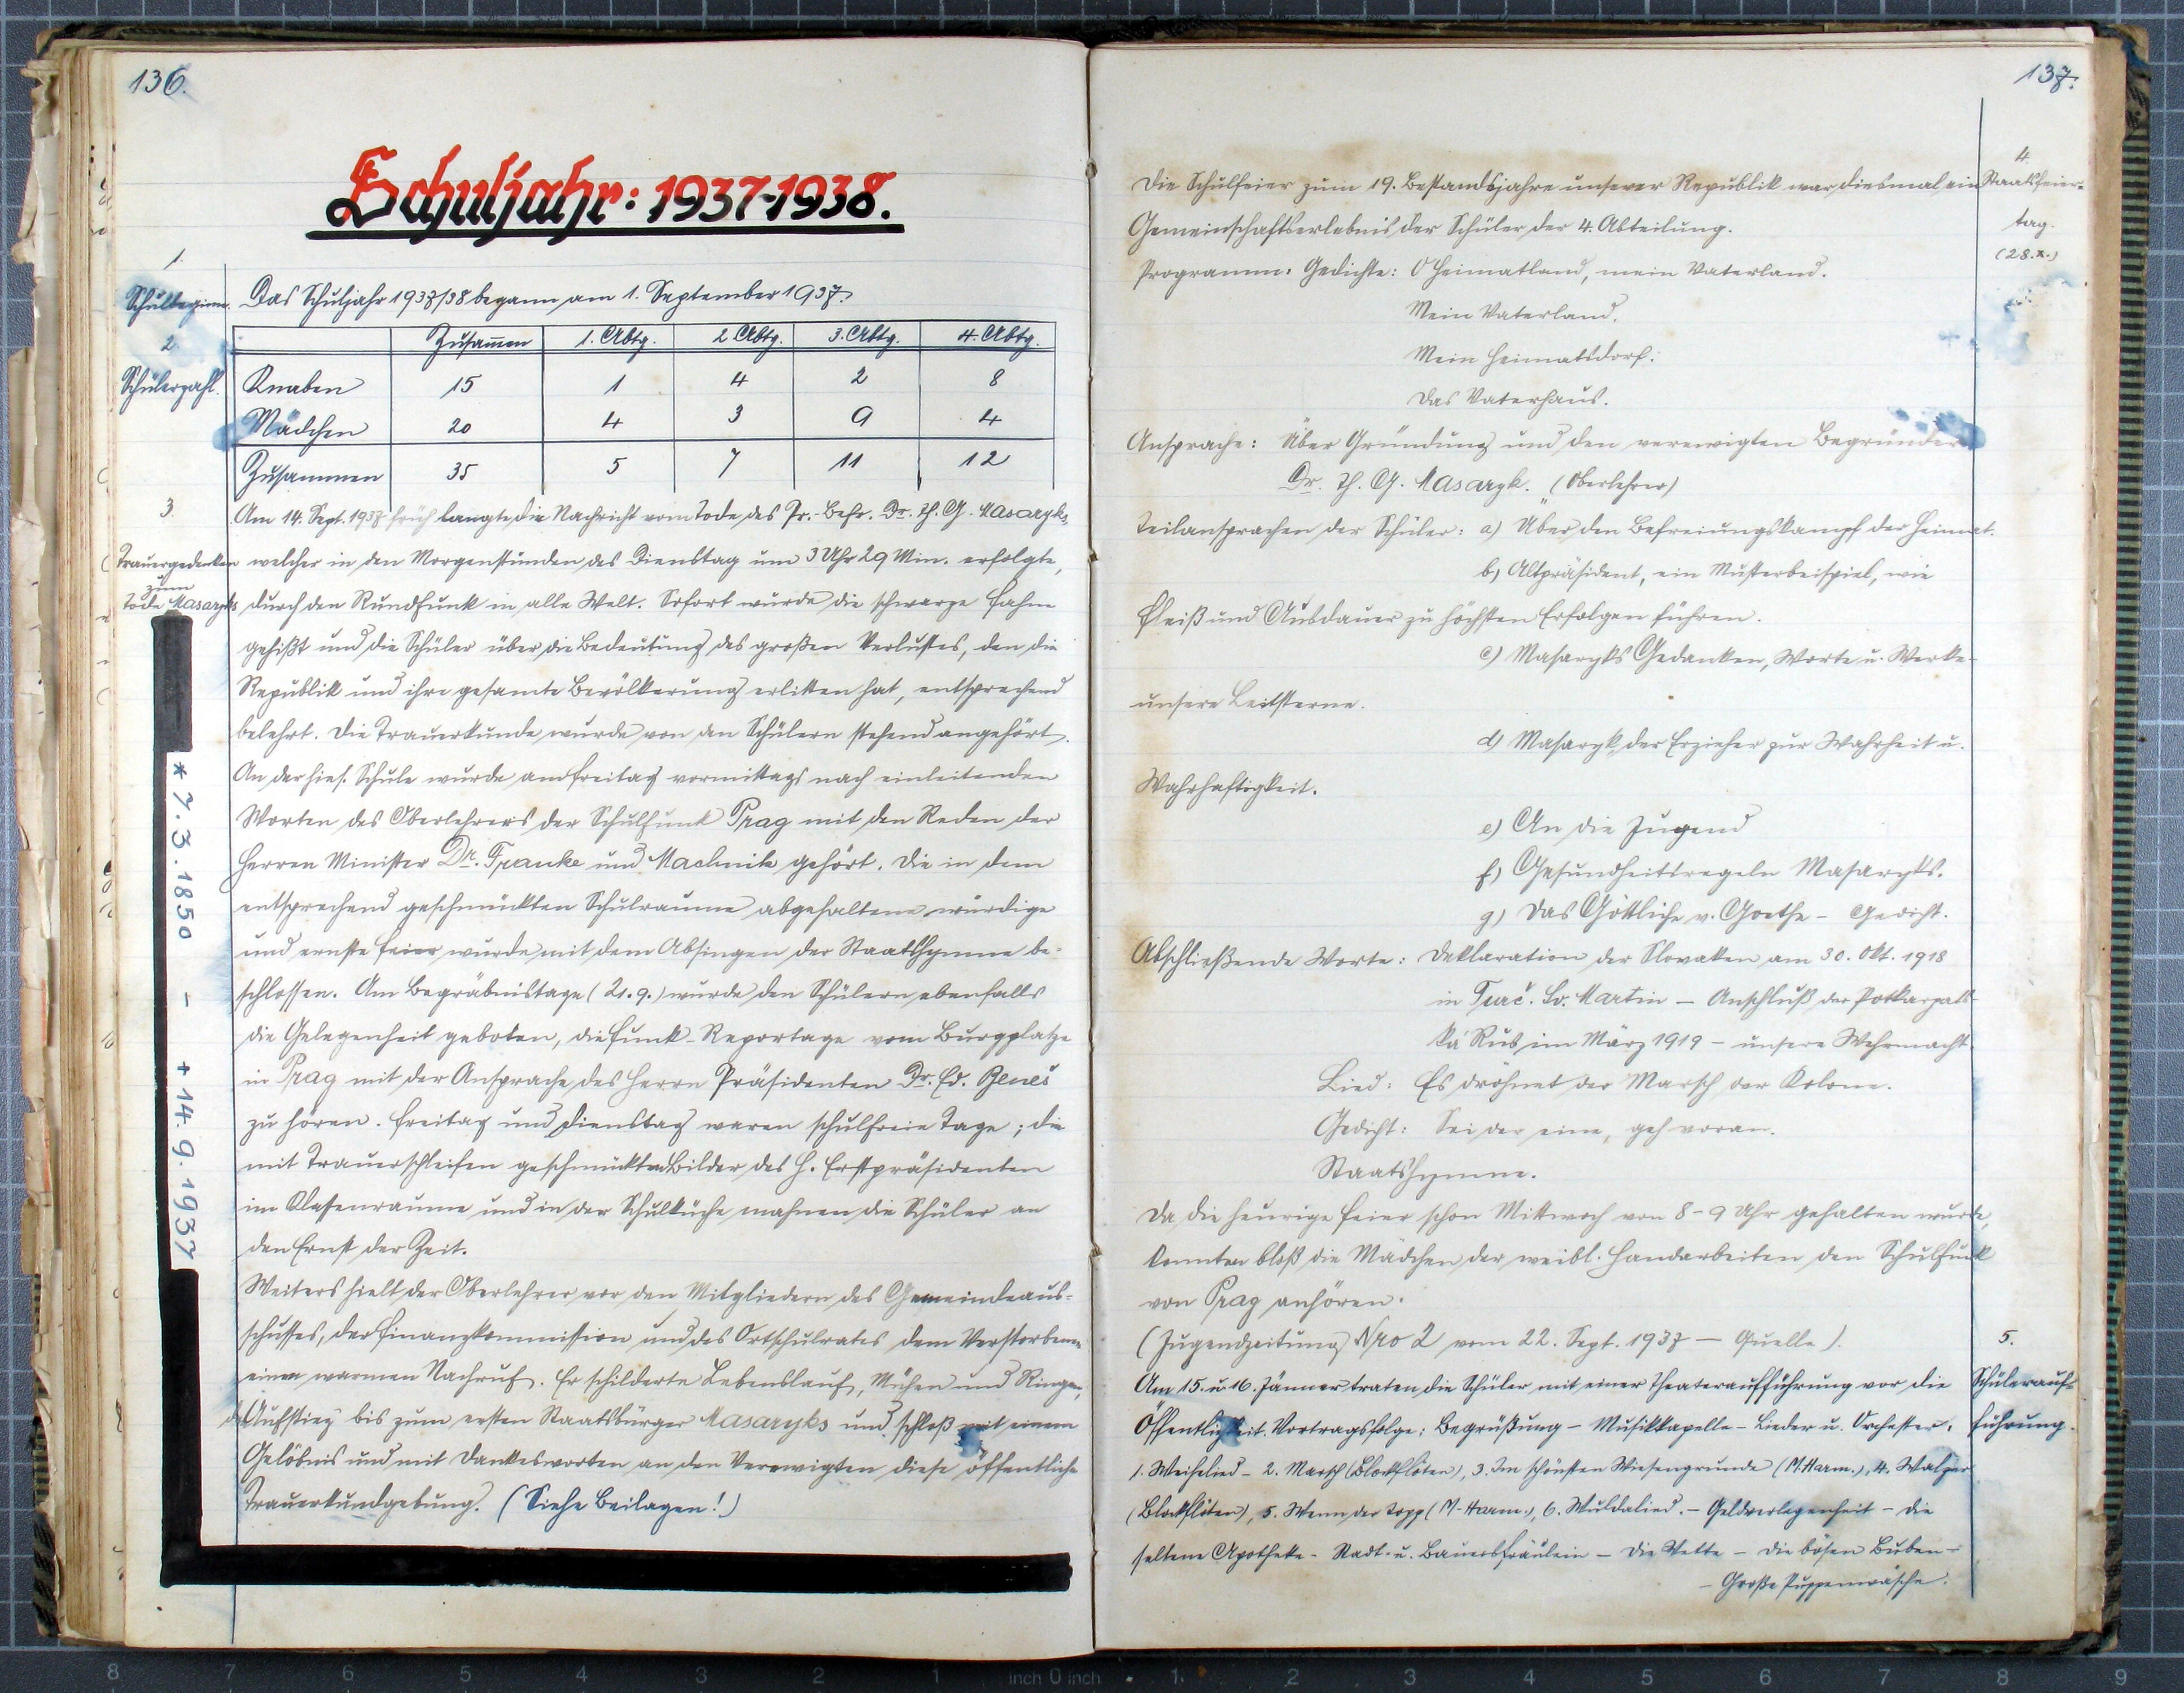 136.
Schuljahr: 1937-1938.
1.
Schulbeginn. Das Schuljahr 1937/38 begann am 1. September 1937.
2.
Schülerzahl.
Zusammen 1. Abtg. 2 Abtg. 3. Abtg. 4. Abtg.
Knaben 15 1 4 2 8
Mädchen 20 4 3 9 4
Zusammen 35 5 7 11 12
3.
Trauergedenken
zum
Tode Masaryks
Am 14. Sept. 1937 früh langte die Nachricht vom Tode des Pr.-Befr. Dr. Th. G. Masaryks,
welcher in den Morgenstunden des Dienstag um 3 Uhr 29 Min. erfolgte,
durch den Rundfunk in alle Welt. Sofort wurde die schwarze Fahne
gehißt und die Schüler über die Bedeutung des großen Verlustes, den die
Republik und ihre gesamte Bevölkerung erlitten hat, entsprechend
belehrt. Die Trauerkunde wurde von den Schülern stehend angehört.
An der hies. Schule wurde am Freitag vormittags nach einleitenden
Worten des Oberlehrers der Schulfunk Prag mit den Reden der
Herren Minister Dr. Franke und Machnik gehört. Die in dem
entsprechend geschmückten Schulraume abgehaltene würdige
und ernste Feier wurde mit dem Absingen der Staatshymne be-
schlossen. Am Begräbnistage (21.9.) wurde den Schülern ebenfalls
die Gelegenheit geboten, die Funk-Reportage vom Burgplatze
in Prag mit der Ansprache des Herrn Präsidenten Dr. Ed. Beneš
zu hören. Freitag und Dienstag waren schulfreie Tage; die
mit Trauerschleifen geschmückten Bilder des H. Erstpräsidenten
im Klassenraume und in der Schulküche mahnen die Schüler an
den Ernst der Zeit.
Weiters hielt der Oberlehrer vor den Mitgliedern des Gemeindeaus-
schusses, der Finanzkommission und des Ortschulrates dem Verstorbenen
einen warmen Nachruf. Er schilderte Lebenslauf, Mühen und Ringen,
d. Aufstieg bis zum ersten Staatsbürger Masaryks und schloß mit einem
Gelöbnis und mit Dankesworten an den Verewigten diese öffentliche
Trauerkundgebung. (Siehe Beilagen!)
* 7.3.1850 - + 14.9.1937
137.
4.
Staatsfeier-
tag.
(28.X.)
Die Schulfeier zum 19. Bestandsjahre unserer Republik war diesmal ein
Gemeinschaftserlebnis der Schüler der 4. Abteilung.
Programm: Gedichte: O Heimatland, mein Vaterland.
Mein Vaterland.
Mein Heimatsdorf.
Das Vaterhaus.
Ansprache: Über Gründung und den verewigten Begründer
Dr. Th. G. Masaryk. (Oberlehrer)
Teilansprachen der Schüler: a) Über den Befreiungskampf der Heimat.
b) Altpräsident, ein Musterbeispiel, wie
Fleiß und Ausdauer zu höchsten Erfolgen führen.
c) Masaryks Gedanken, Worte u. Werke-
unsere Leitsterne.
d) Masaryk, der Erzieher zur Wahrheit u.
Wahrhaftigkeit.
e) An die Jugend
f) Gesundheitsregeln Masaryks.
g) Das Göttliche v. Goethe - Gedicht.
Abschließende Worte: Deklaration der Slovaken am 30. Okt. 1918
in Turč. Sv. Martin - Anschluß der Potkarpats-
ká Rus im März 1919 - unsere Wehrmacht
Lied: Es dröhnet der Marsch der Kolone.
Gedicht: Sei der eine, geh voran.
Staatshymne.
Da die heurige Feier schon Mittwoch von 8-9 Uhr gehalten wurde,
konnten bloß die Mädchen der weibl. Handarbeiten den Schulfunk
von Prag anhören.
(Jugendzeitung Nro 2 vom 22. Sept. 1937 - Quelle).
5.
Schülerauf-
führung.
Am 15. u. 16. Jänner traten die Schüler mit einer Theateraufführung vor die
Öffentlichkeit. Vortragsfolge: Begrüßung - Musikkapelle - Lieder u. Orchester.
1. Weihelied - 2. Marsch (Blockflöten), 3. Im schönsten Wiesengrunde (M. Harm.), 4. Walzer
(Blockflöten), 5. Wenn der Topp (M-Harm.), 6. Muldalied. - Geldverlegenheit - Die
seltene Apotheke - Stadt- u. Bauersfräulein - Die Wette - Die bösen Buben -
- Große Puppenwäsche.
inch 0 inch
8 7 6 5 4 3 2 1 1 2 3 4 5 6 7 8 9